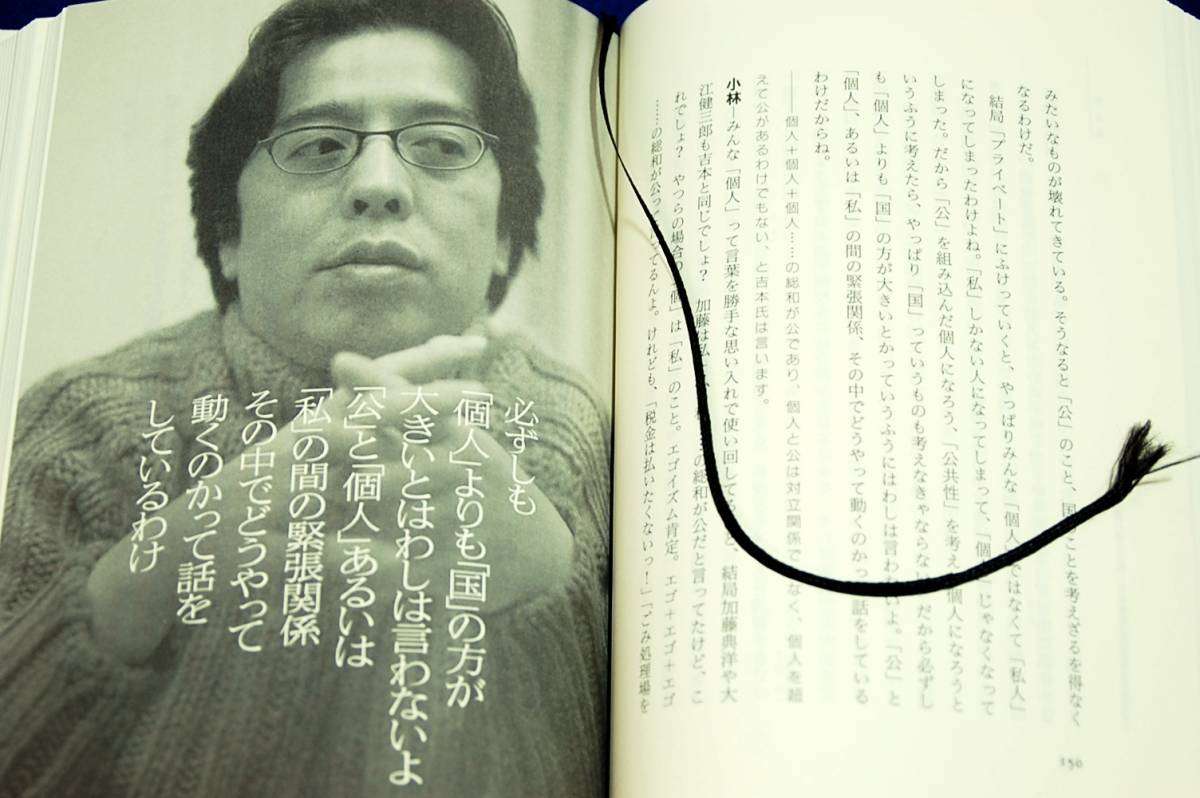 みたいなものが壊れてきている。そうなると「公」のこと、国ことを考えざるを得なく
なるわけだ。
結局「プライベート」にふけっていくと、やっぱりみんな「個人ではなくて「私人」
になってしまったわけよね。「私」しかない人になってしまって、「個」じゃなくなって
しまった。だから「公」を組み込んだ個人になろう、「公共性」を考え個人になろうと
いうふうに考えたら、やっぱり「国」っていうものも考えなきゃならないだから必ずし
も「個人」よりも「国」の方が大きいとかっていうふうにはわしは言わないよ。「公」と
「個人」、あるいは「私」の間の緊張関係、その中でどうやって動くのかっ話をしている
わけだからね。
――個人＋個人＋個人……の総和が公であり、個人と公は対立関係でなく、個人を超
えて公があるわけでもない、と吉本氏は言います。
小林―みんな「個人」って言葉を勝手な思い入れで使い回してると、結局加藤典洋や大
江健三郎も吉本と同じでしょ？　加藤は私の総和が公だと言ってたけど、こ
れでしょ？　やつらの場合の「個」は「私」のこと。エゴイズム肯定。エゴ＋エゴ＋エゴ
……の総和が公ってるんよ。けれども、「税金は払いたくないっ！」「ごみ処理場を
150
必ずしも
「個人」よりも「国」の方が
大きいとはわしは言わないよ
「公」と「個人」あるいは
「私」の間の緊張関係
その中でどうやって
動くのかって話を
しているわけ